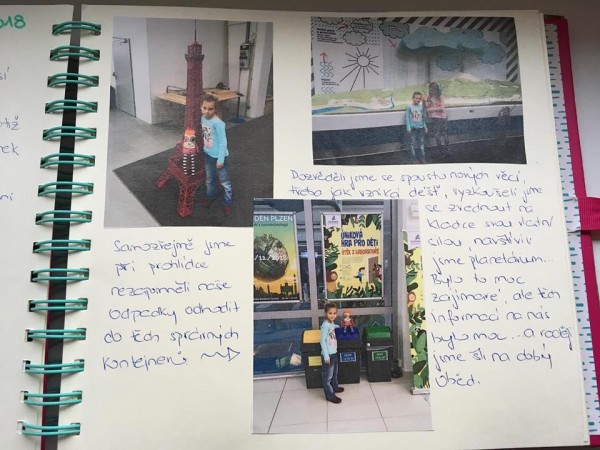 2018
Dozvěděli jsme se spoustu nových věcí,
třeba jak vzniká déšť, vyzkoušeli jsme
se zvednout na
kladce svou vlastní
silou, navštívili
jsme planetárium...
Bylo to moc
zajímavé, ale těch
informací na nás
bylo moc... a raději
jsme šli na dobrý
oběd.
Samozřejmě jsme
při prohlídce
nezapomněli naše
odpadky odhodit
do těch správných
kontejnerů
DEN PLZEN
11/2018
ÚNIKOVÁ
HRA PRO DĚTI
ÚTĚK Z LABORATOŘE